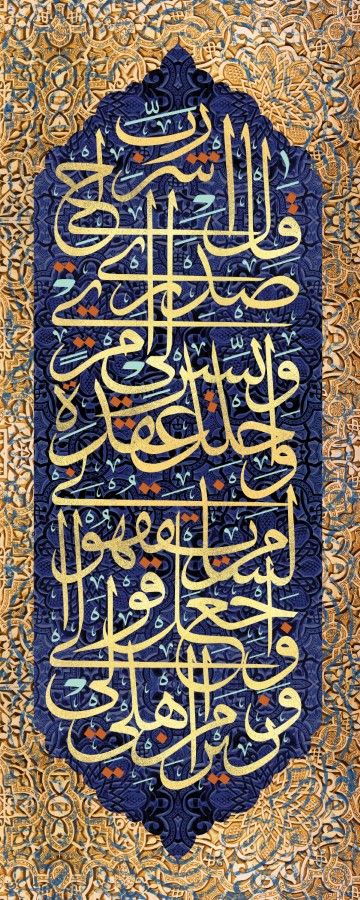 قال رب اشرح لي
صدري
ويسر لي أمري
واحلل عقدة
من لساني يفقهوا
قولي واجعل لي
وزيرا من أهلي